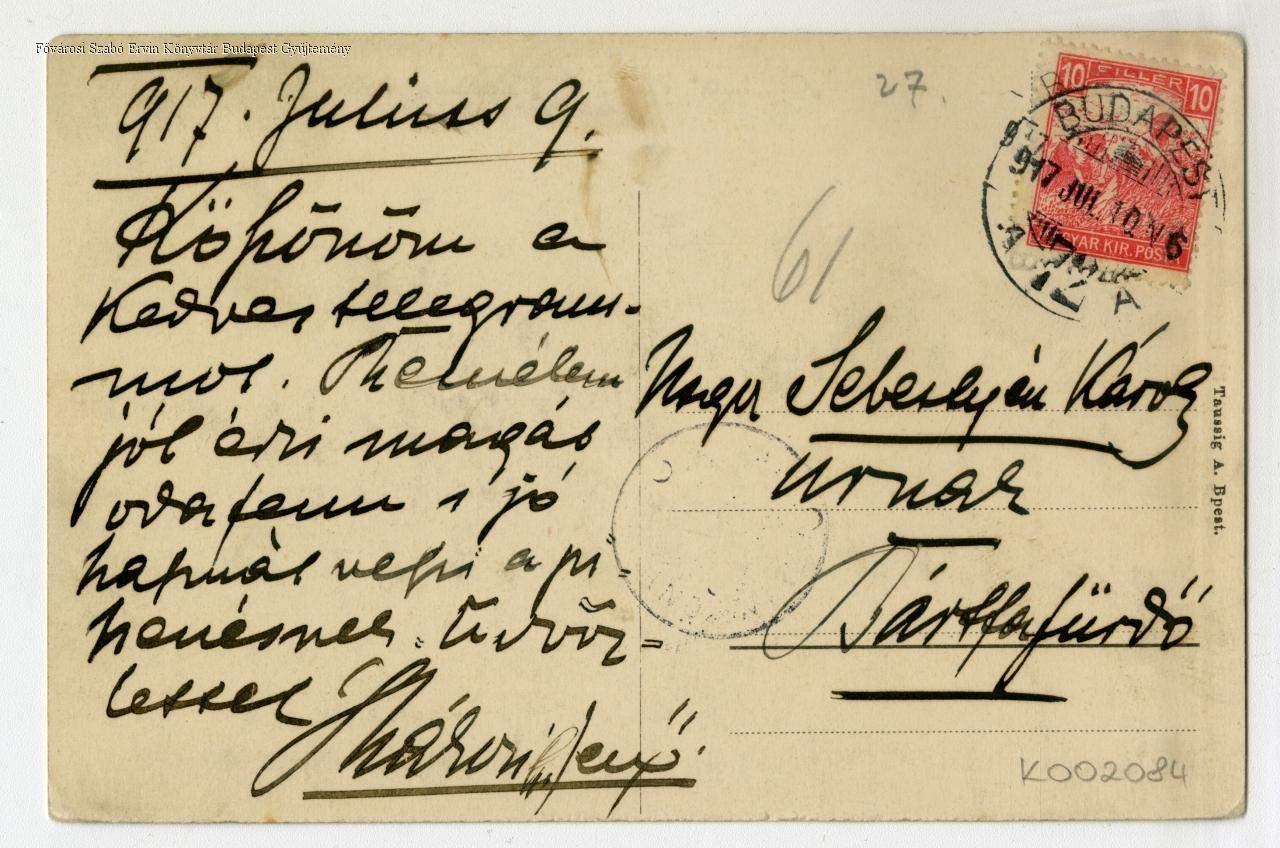 Fővárosi Szabó Ervin Könyvtár Budapest Gyűjtemény
917. Julius 9.
Köszönöm a
kedves telegram-
mot. Remélem
jól érzi magát
odafenn s jó
hasznát veszi a pi=
henésnek. Üdvöz=
lettel
Jenő.
27.
61
10 FILLER 10
MAGYAR KIR. POSTA
BUDAPEST
917 JUL. 10. N 6
Nagys Sebestyén Károly
urnak
Bártfafürdő
Taussig A. Bpest.
K002084